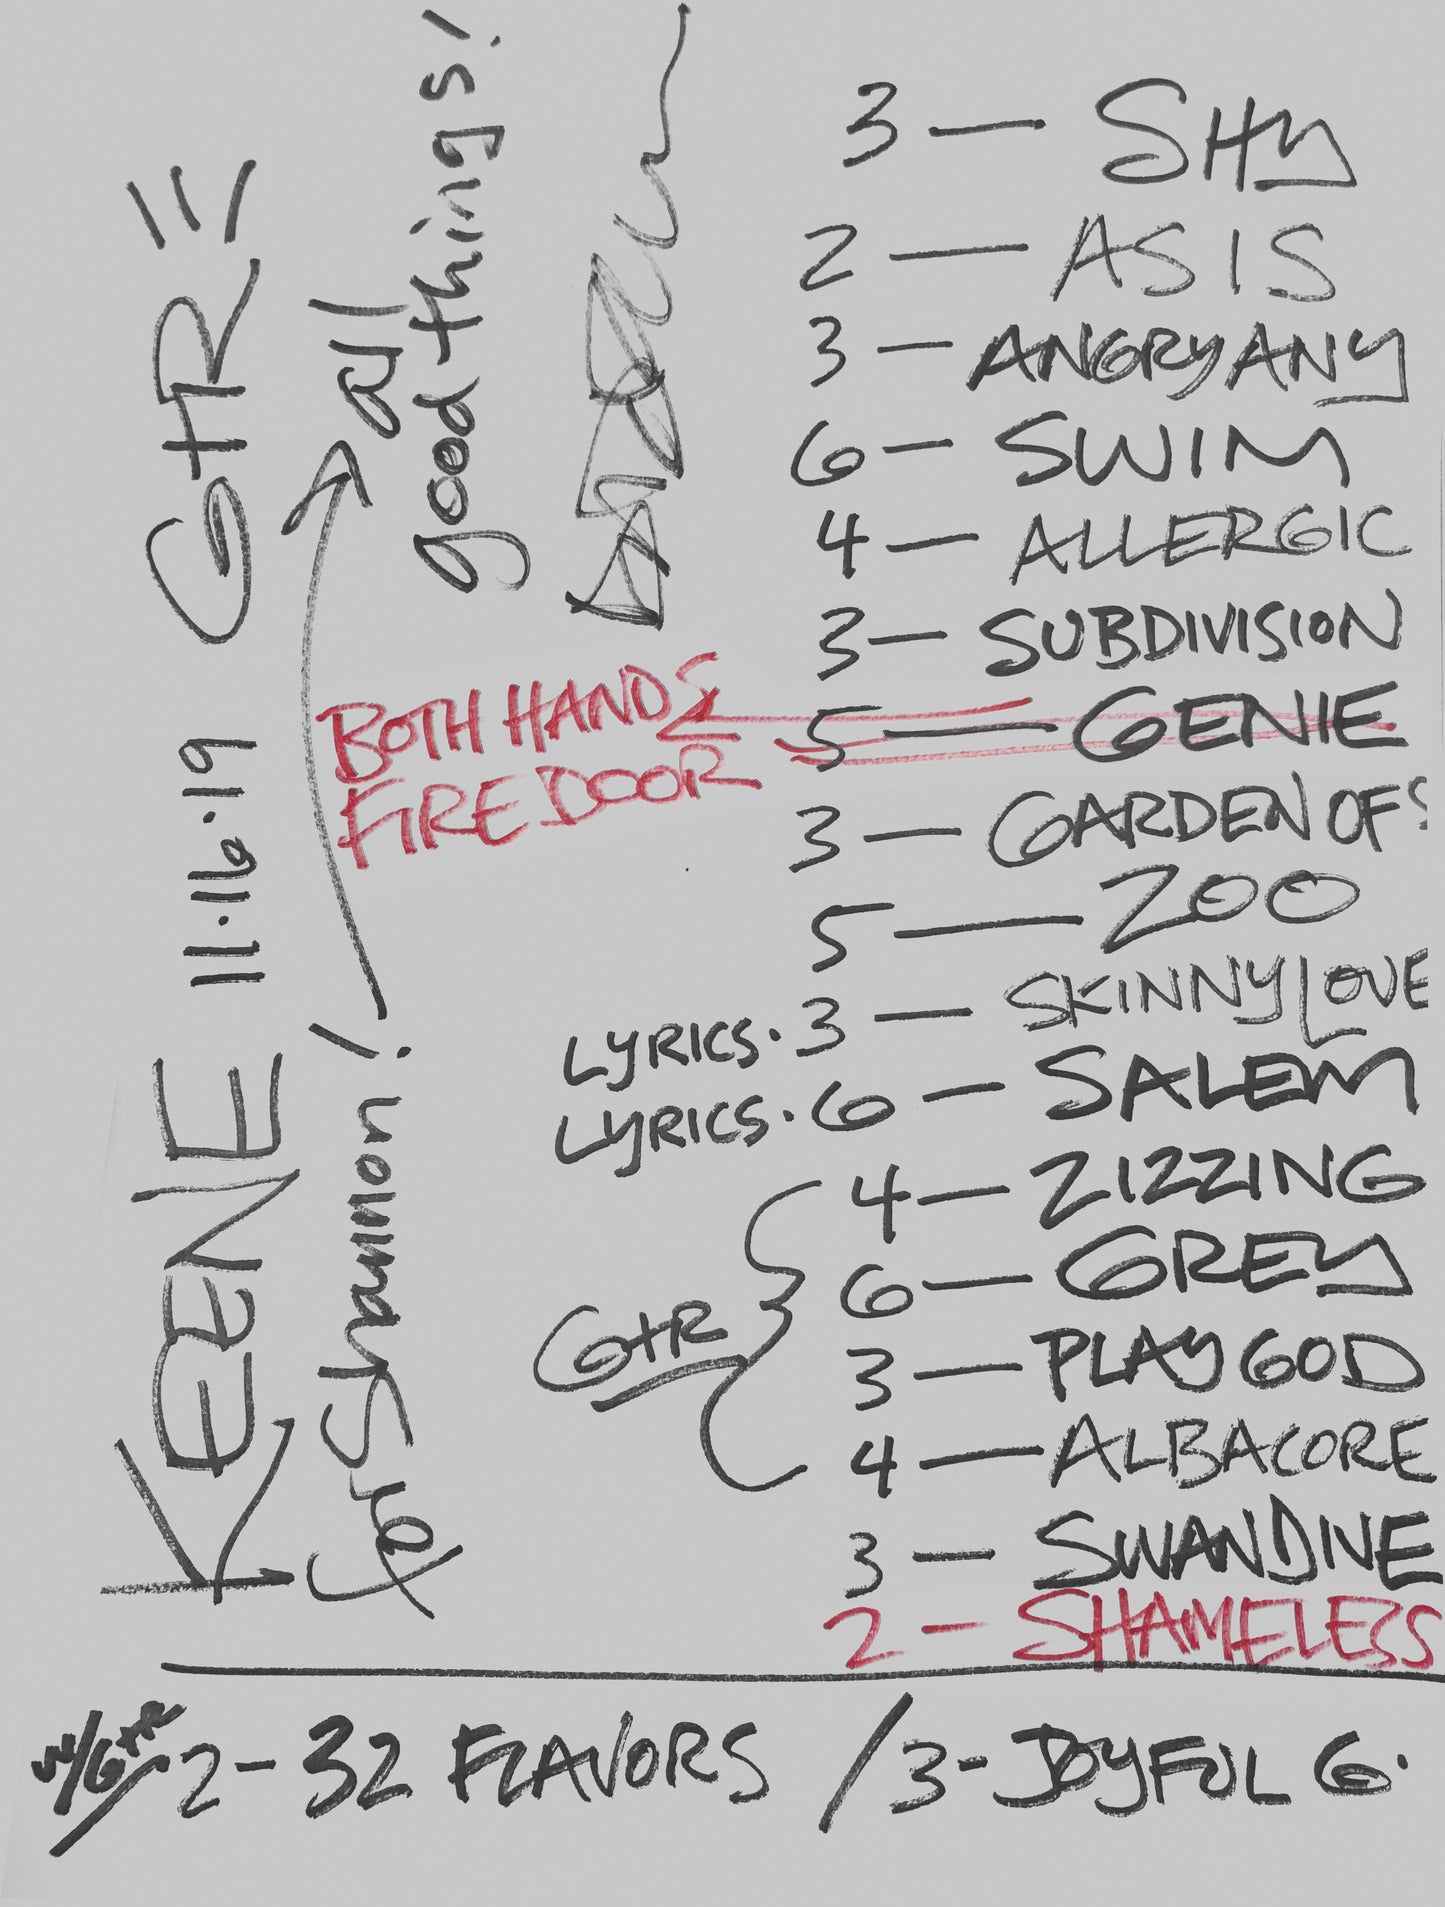 KEENE 11.16.19 GTR
for Shannon! all
good things!
3 — SHY
2 — AS IS
3 — ANGRY ANY
6 — SWIM
4 — ALLERGIC
3 — SUBDIVISION
BOTH HANDS
FIRE DOOR
5 — GENIE
3 — GARDEN OF
5 — ZOO
LYRICS · 3 — SKINNY LOVE
LYRICS · 6 — SALEM
GTR
4 — ZIZZING
6 — GREY
3 — PLAY GOD
4 — ALBACORE
3 — SWANDIVE
2 — SHAMELESS
w/GTR 2 - 32 FLAVORS / 3 - JOYFUL G.